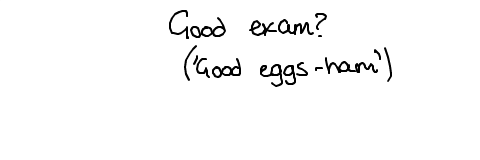 Good exam?
('Good eggs-ham')